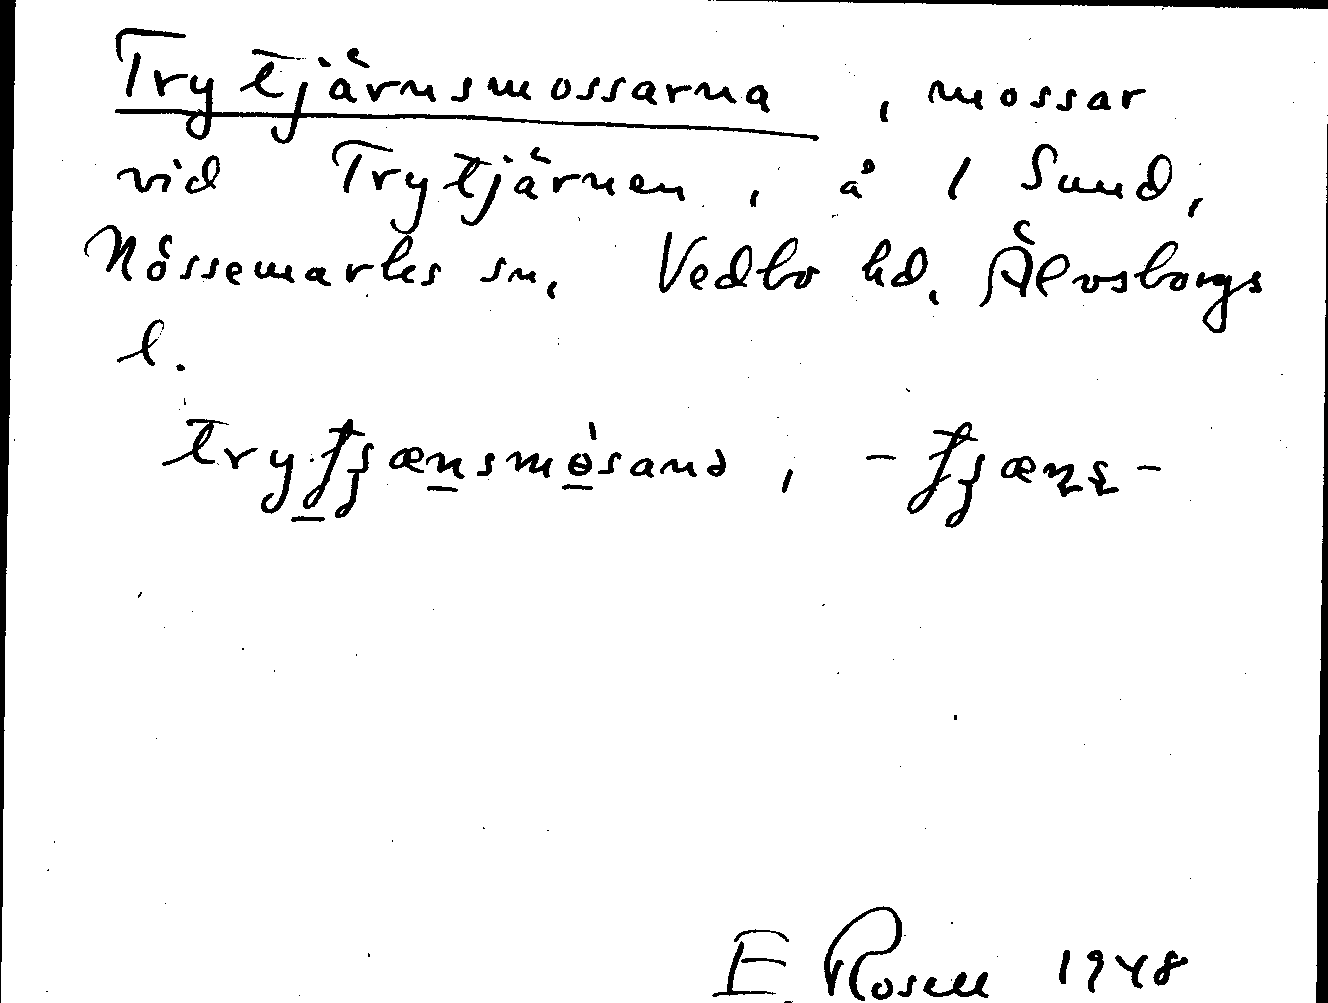 Trytjärnsmossarna, mossar
vid Trytjärnen, å 1 Sund,
Nössemarks sn, Vedbo hd, Älvsborgs
l.
E Rosell 1948